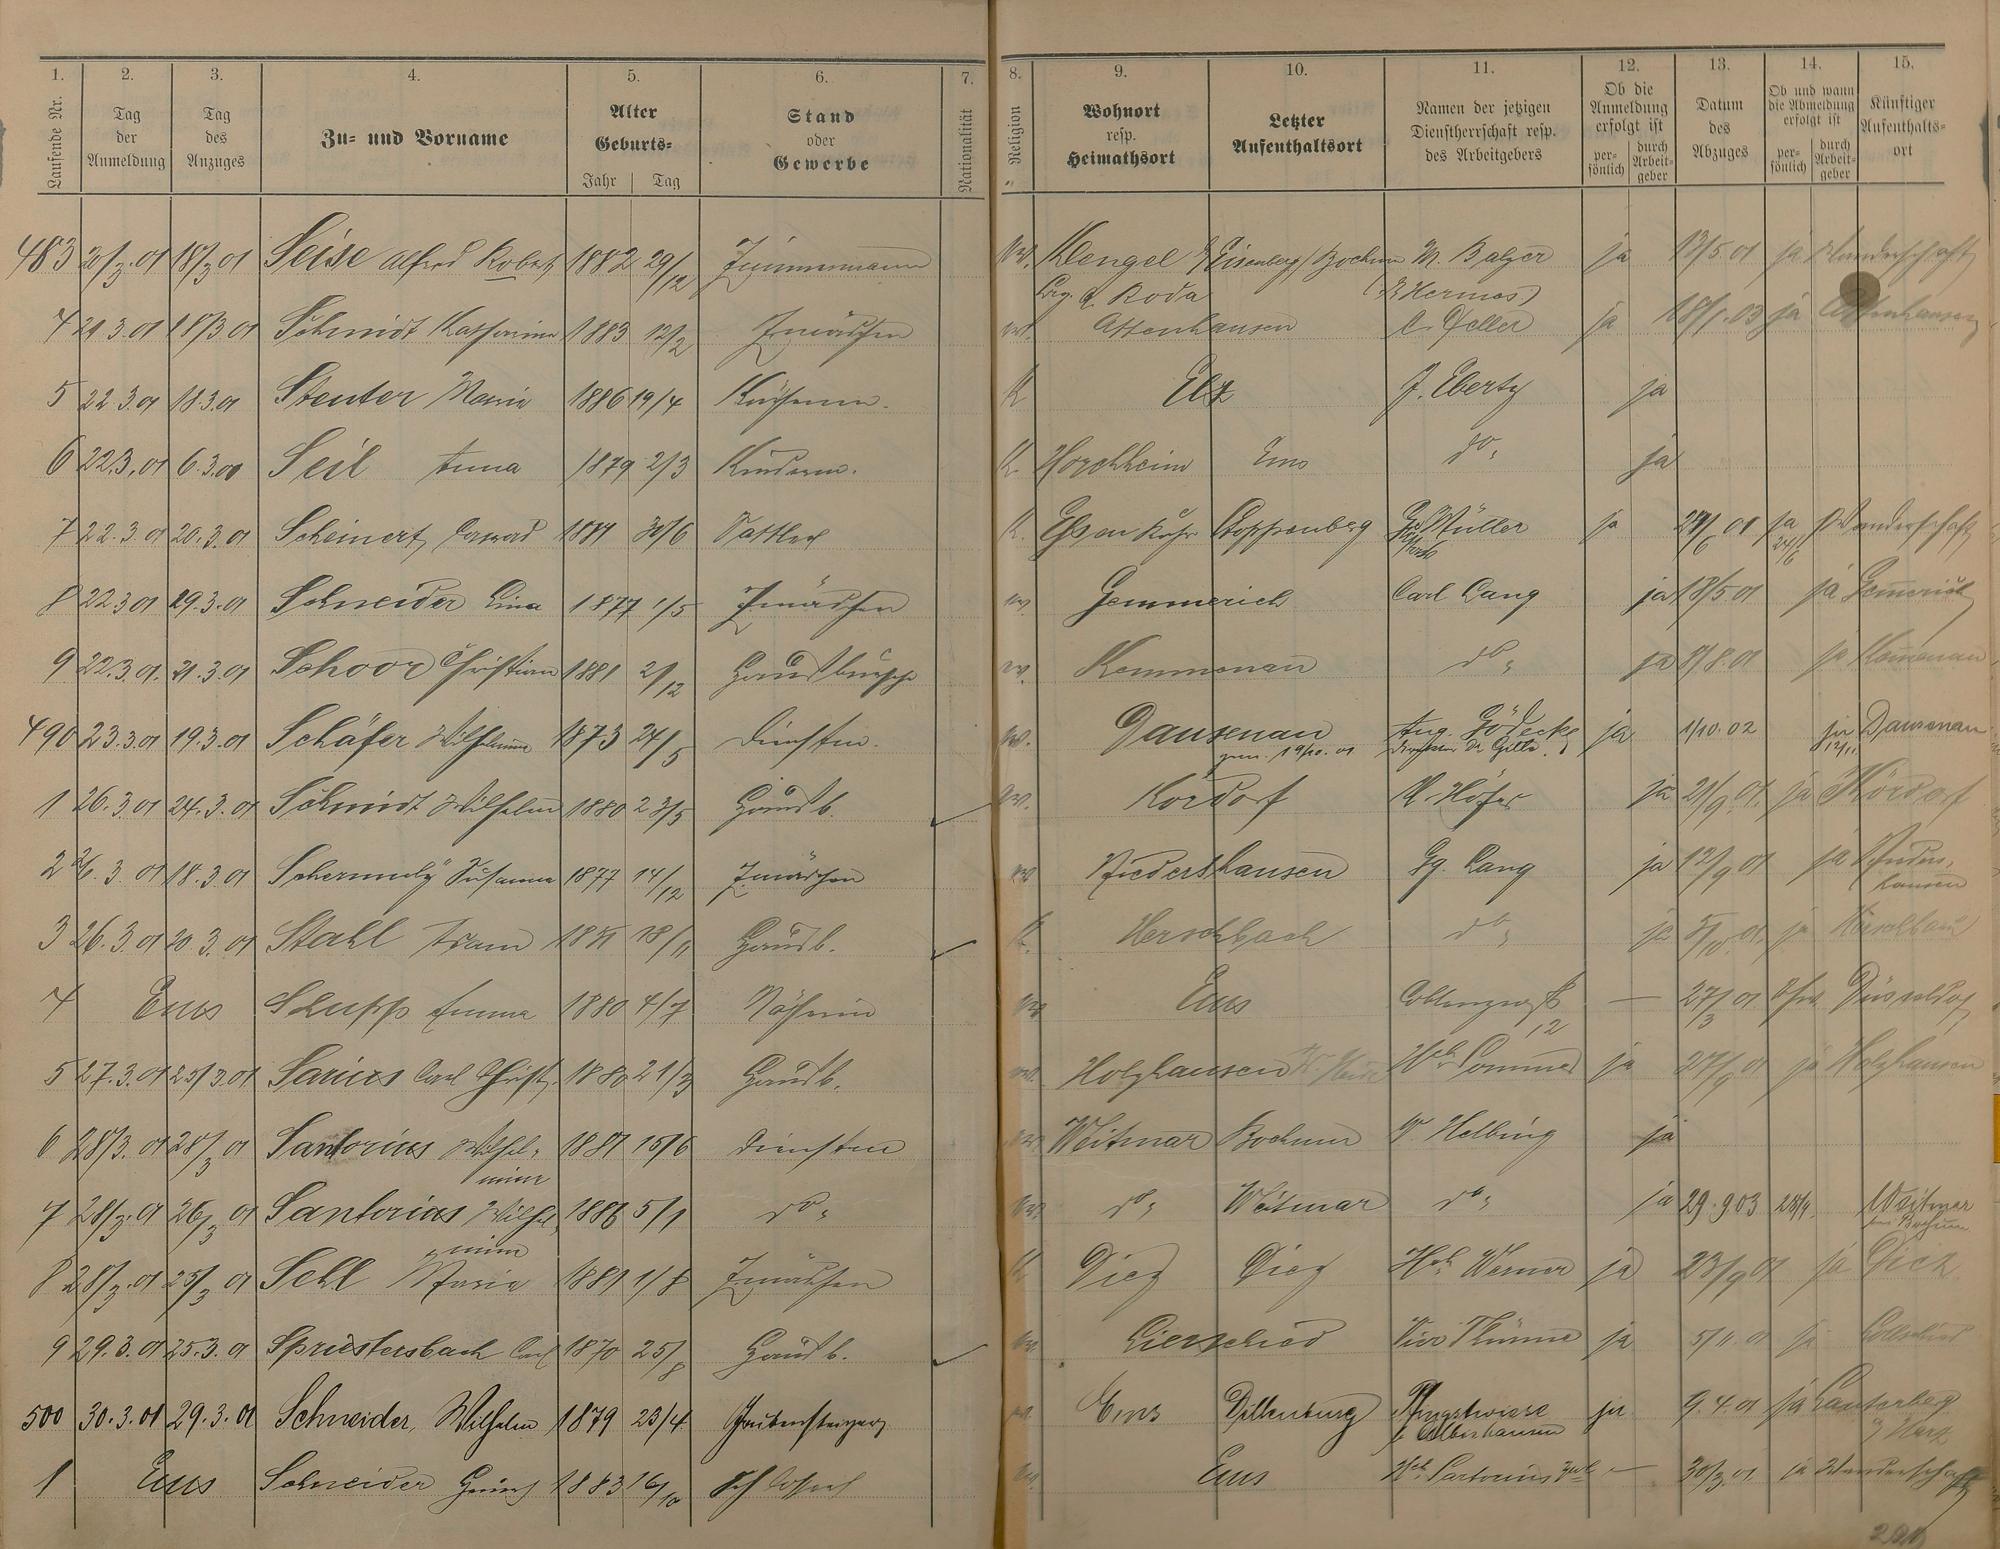 1. 2. 3. 4. 5. 6. 7. 8. 9. 10. 11. 12. 13. 14. 15.
Laufende Nr. Tag der Anmeldung Tag des Anzuges Zu- und Vorname Alter Geburts- Jahr Tag Stand oder Gewerbe Nationalität Religion Wohnort resp. Heimathsort Letzter Aufenthaltsort Namen der jetzigen Dienstherrschaft resp. des Arbeitgebers Ob die Anmeldung erfolgt ist per- sönlich durch Arbeit- geber Datum des Abzuges Ob und wann die Abmeldung erfolgt ist per- sönlich durch Arbeit- geber Künftiger Aufenthalts- ort
483 20/3.01 18/3 01 Seise Alfred Robert 1882 29/12 Zimmermann Kengel Eisenberg Bochum M. Balzer ja 13/5.01 ja Wanderschaft
Roda (B. Hermes)
4 21.3.01 18/3 01 Schmidt Katharina 1883 12/2 Zmädchen Attenhausen ja 18/1.03 ja Attenhausen
5 22.3.01 18.3.01 Stenter Maria 1886 19/4 K Elz J. Ebertz ja
6 22.3.01 6.3.00 Seil Anna 1879 2/3 Kinderm. K. Horchheim Ems do. ja
7 22.3.01 20.3.01 Scheinert 30/6 Sattler K. Essen Ruhr Stoppenberg Müller ja 24/6 01 ja 24/6 Wanderschaft
8 22.3.01 29.3.01 Schneider Lina 1877 1/5 Zmädchen Gemmerich Carl Lang ja 13/5 01 ja Gemmerich
9 22.3.01. 21.3.01 Schoor Christian 1881 2/12 Hausbursche Kemmenau do. ja 8/8.01 ja Kemmenau
490 23.3.01 19.3.01 Schäfer Wilhelmine 1873 24/5 Dienstm. Dausenau Aug. Gödecke ja 1/10.02 ja Dausenau
19/10.01
1 26.3.01 24.3.01 Schmidt Wilhelm 1880 23/5 Hausb. Kördorf Höfer ja 21/9 01. ja Kördorf
2 26.3.01 18.3.01 Schermuly Susanna 1877 14/12 Zmädchen Niedershausen Gg. Lang ja 12/9 01 ja Nieders-
hausen
3 26.3.01 20.3.01 Stahl Adam 18/11 Hausb. K. Herschbach do. ja ja Herschbach
4 Ems Stupp Emma 1880 4/7 Näherin Ems — 27/3 01 Düsseldorf
12
5 27.3.01 25/3.01 Sarius Carl Christ. 1880 21/3 Hausb. Holzhausen Sommer ja 27/9 01 ja Holzhausen
6 28/3.01 28/3 01 Santorius Wilhel-
mine 1887 15/6 Dienstm Weitmar Bochum Helbing ja
7 28/3.01 26/3 01 Santorius Wilhel-
mine 1886 5/1 do. do. Weitmar do. ja 29.9 03 28/9. Weitmar
bei Bochum
8 28/3.01 25/3 01 Sehl Maria 1881 1/8 Zmädchen K. Diez Diez Werner ja 23/9 01 ja Diez
9 29.3.01 25.3.01 Spriestersbach Carl 1870 25/8 Hausb. Lierschied Vier Thürme ja 5/11.01 ja
500 30.3.01 29.3.01 Schneider, Wilhelm 1879 23/4 Grubensteiger Ems Dillenburg Pfingstwiese ja 9.4.01 ja Lauterberg
Harz
1 Ems Schneider 1883 16/10 Schlosser Ems Sartorius — 30/3.01 ja Wanderschaft